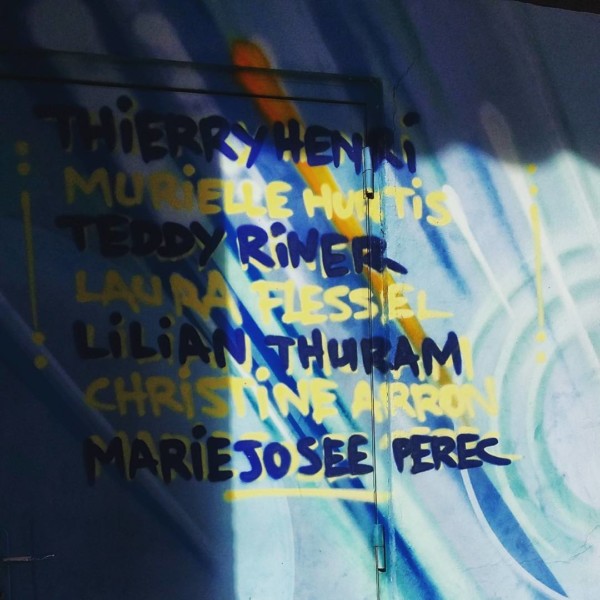 THiERRY HENRi
MURiELLE HURTiS
TEDDY RiNER
LAURA FLESSEL
LiLiAN THURAM
CHRiSTiNE ARRON
MARiE JOSEE PEREC